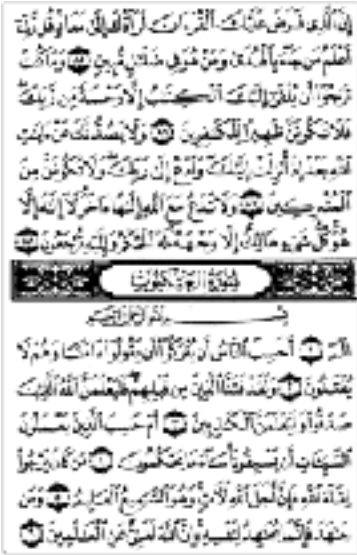 إِنَّ الَّذِي فَرَضَ عَلَيْكَ الْقُرْآنَ لَرَادُّكَ إِلَىٰ مَعَادٍ قُل رَّبِّي
أَعْلَمُ مَن جَاءَ بِالْهُدَىٰ وَمَنْ هُوَ فِي ضَلَالٍ مُّبِينٍ ٨٥ وَمَا كُنتَ
تَرْجُو أَن يُلْقَىٰ إِلَيْكَ الْكِتَابُ إِلَّا رَحْمَةً مِّن رَّبِّكَ
فَلَا تَكُونَنَّ ظَهِيرًا لِّلْكَافِرِينَ ٨٦ وَلَا يَصُدُّنَّكَ عَنْ آيَاتِ
اللَّهِ بَعْدَ إِذْ أُنزِلَتْ إِلَيْكَ وَادْعُ إِلَىٰ رَبِّكَ وَلَا تَكُونَنَّ مِنَ
الْمُشْرِكِينَ ٨٧ وَلَا تَدْعُ مَعَ اللَّهِ إِلَٰهًا آخَرَ لَا إِلَٰهَ إِلَّا
هُوَ كُلُّ شَيْءٍ هَالِكٌ إِلَّا وَجْهَهُ لَهُ الْحُكْمُ وَإِلَيْهِ تُرْجَعُونَ ٨٨
سُورَةُ الْعَنكَبُوتِ
بِسْمِ اللَّهِ الرَّحْمَٰنِ الرَّحِيمِ
الم ١ أَحَسِبَ النَّاسُ أَن يُتْرَكُوا أَن يَقُولُوا آمَنَّا وَهُمْ لَا
يُفْتَنُونَ ٢ وَلَقَدْ فَتَنَّا الَّذِينَ مِن قَبْلِهِمْ فَلَيَعْلَمَنَّ اللَّهُ الَّذِينَ
صَدَقُوا وَلَيَعْلَمَنَّ الْكَاذِبِينَ ٣ أَمْ حَسِبَ الَّذِينَ يَعْمَلُونَ
السَّيِّئَاتِ أَن يَسْبِقُونَا سَاءَ مَا يَحْكُمُونَ ٤ مَن كَانَ يَرْجُو
لِقَاءَ اللَّهِ فَإِنَّ أَجَلَ اللَّهِ لَآتٍ وَهُوَ السَّمِيعُ الْعَلِيمُ ٥ وَمَن
جَاهَدَ فَإِنَّمَا يُجَاهِدُ لِنَفْسِهِ إِنَّ اللَّهَ لَغَنِيٌّ عَنِ الْعَالَمِينَ ٦